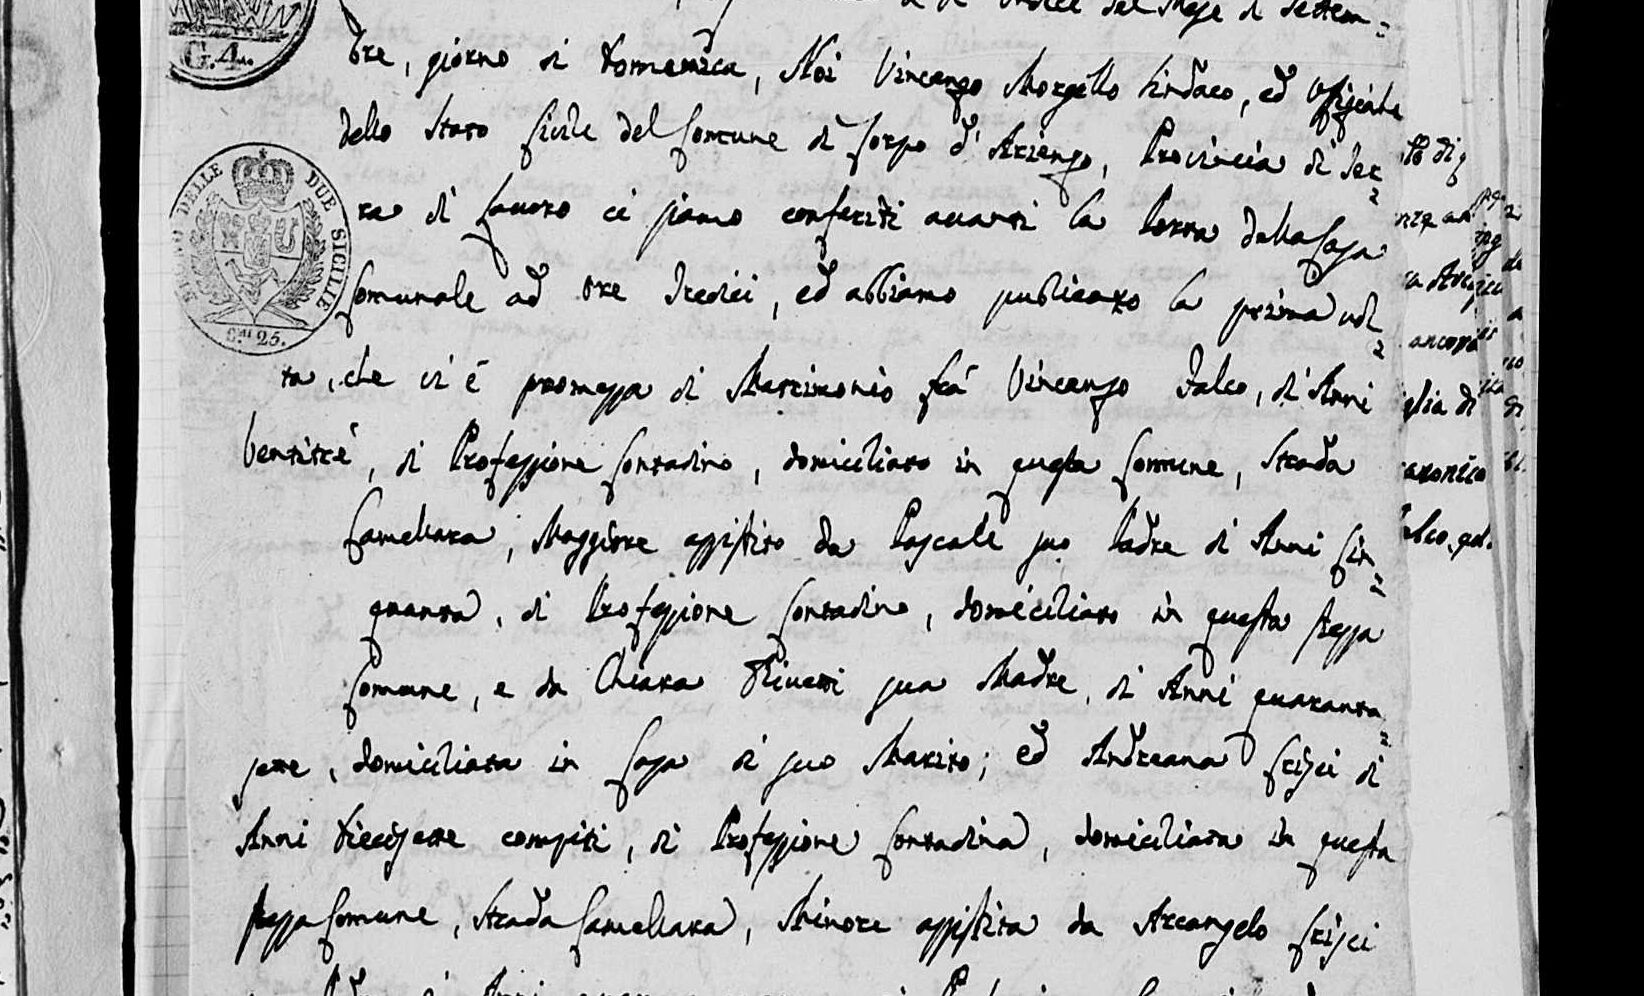 del Mese di Settem=
bre, giorno di Domenica, Noi Vincenzo Morgillo Sindaco, ed Uffiziale
dello Stato Civile del Comune di Corpo d'Arienzo, Provincia di Ter=
ra di Lavoro ci siamo conferiti avanti la Porta della Casa
Comunale ad ore Tredici, ed abbiamo publicato la prima vol=
ta, che vi è promessa di Matrimonio frà Vincenzo Falco, di Anni
Ventitrè, di Professione Contadino, domiciliato in questa Comune, Strada
Camellara, Maggiore assistito da Pascale suo Padre di Anni Cin=
quanta, di Professione Contadino, domiciliato in questa stessa
Comune, e da Chiara sua Madre, di Anni quaranta=
sette, domiciliata in Casa di suo Marito; ed Andreana Crisci di
Anni Diecisette compiti, di Professione Contadina, domiciliata in questa
stessa Comune, Strada Camellara, Minore assistita da Arcangelo Crisci
G. 4.
DELLE DUE SICILIE
G. 25.
ancora
glia di